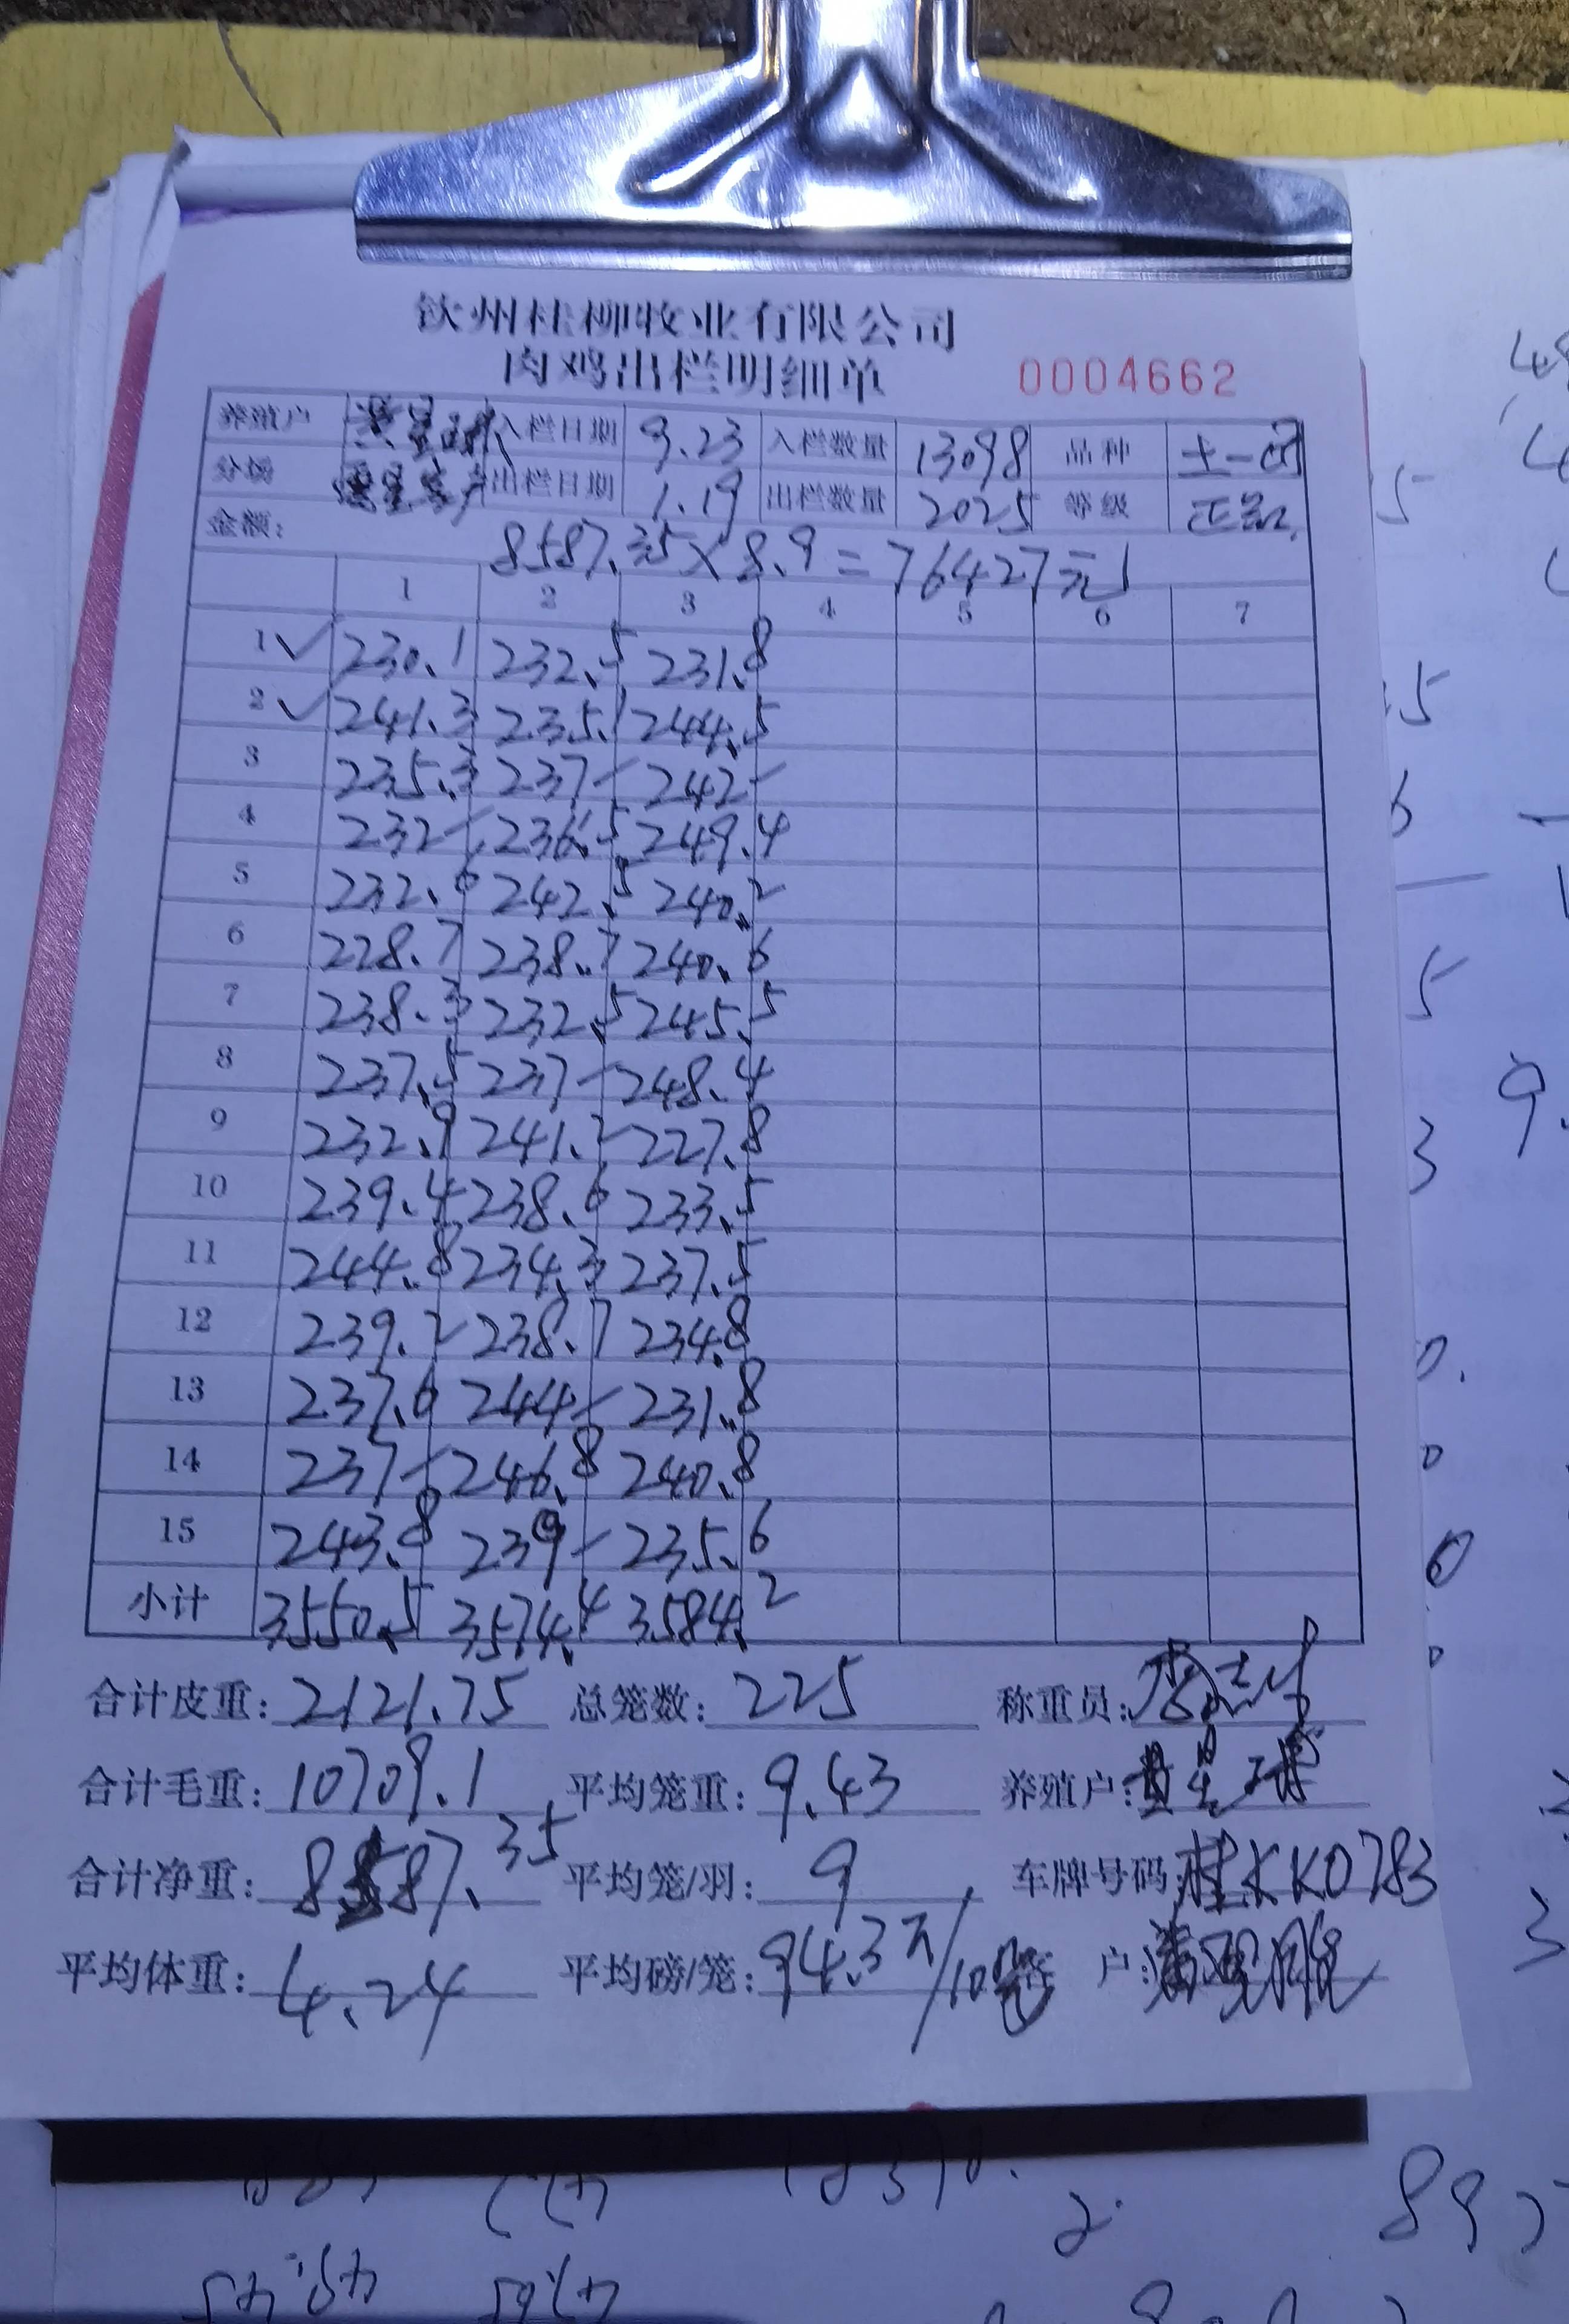 钦州桂柳牧业有限公司
肉鸡出栏明细单 0004662
养殖户 入栏日期 9.23 入栏数量 13098 品种 土一
分场 出栏日期 1.19 出栏数量 2025 等级 正品
金额: 8587.35×8.9=76427元
1 2 3 4 5 6 7
1 ✓ 230.1 232.5 231.8
2 ✓ 241.3 235.1 244.5
3 235.3 237- 242-
4 232- 236.5 249.4
5 232.6 242.5 240.2
6 228.7 238.7 240.6
7 238.3 232.5 245.5
8 237.5 237- 248.4
9 232.9 241.2 227.8
10 239.4 238.6 233.5
11 244.8 234.3 237.5
12 239.2 238.7 234.8
13 237.6 244- 231.8
14 237- 246.8 240.8
15 243.8 239- 235.6
小计 3550.5 3574.4 3584.2
合计皮重: 2121.75 总笼数: 225 称重员:
合计毛重: 10709.1 平均笼重: 9.43 养殖户:
合计净重: 8587.35 平均笼/羽: 9 车牌号码: 桂KK0783
平均体重: 4.24 平均磅/笼: 94.3斤/10笼 户: